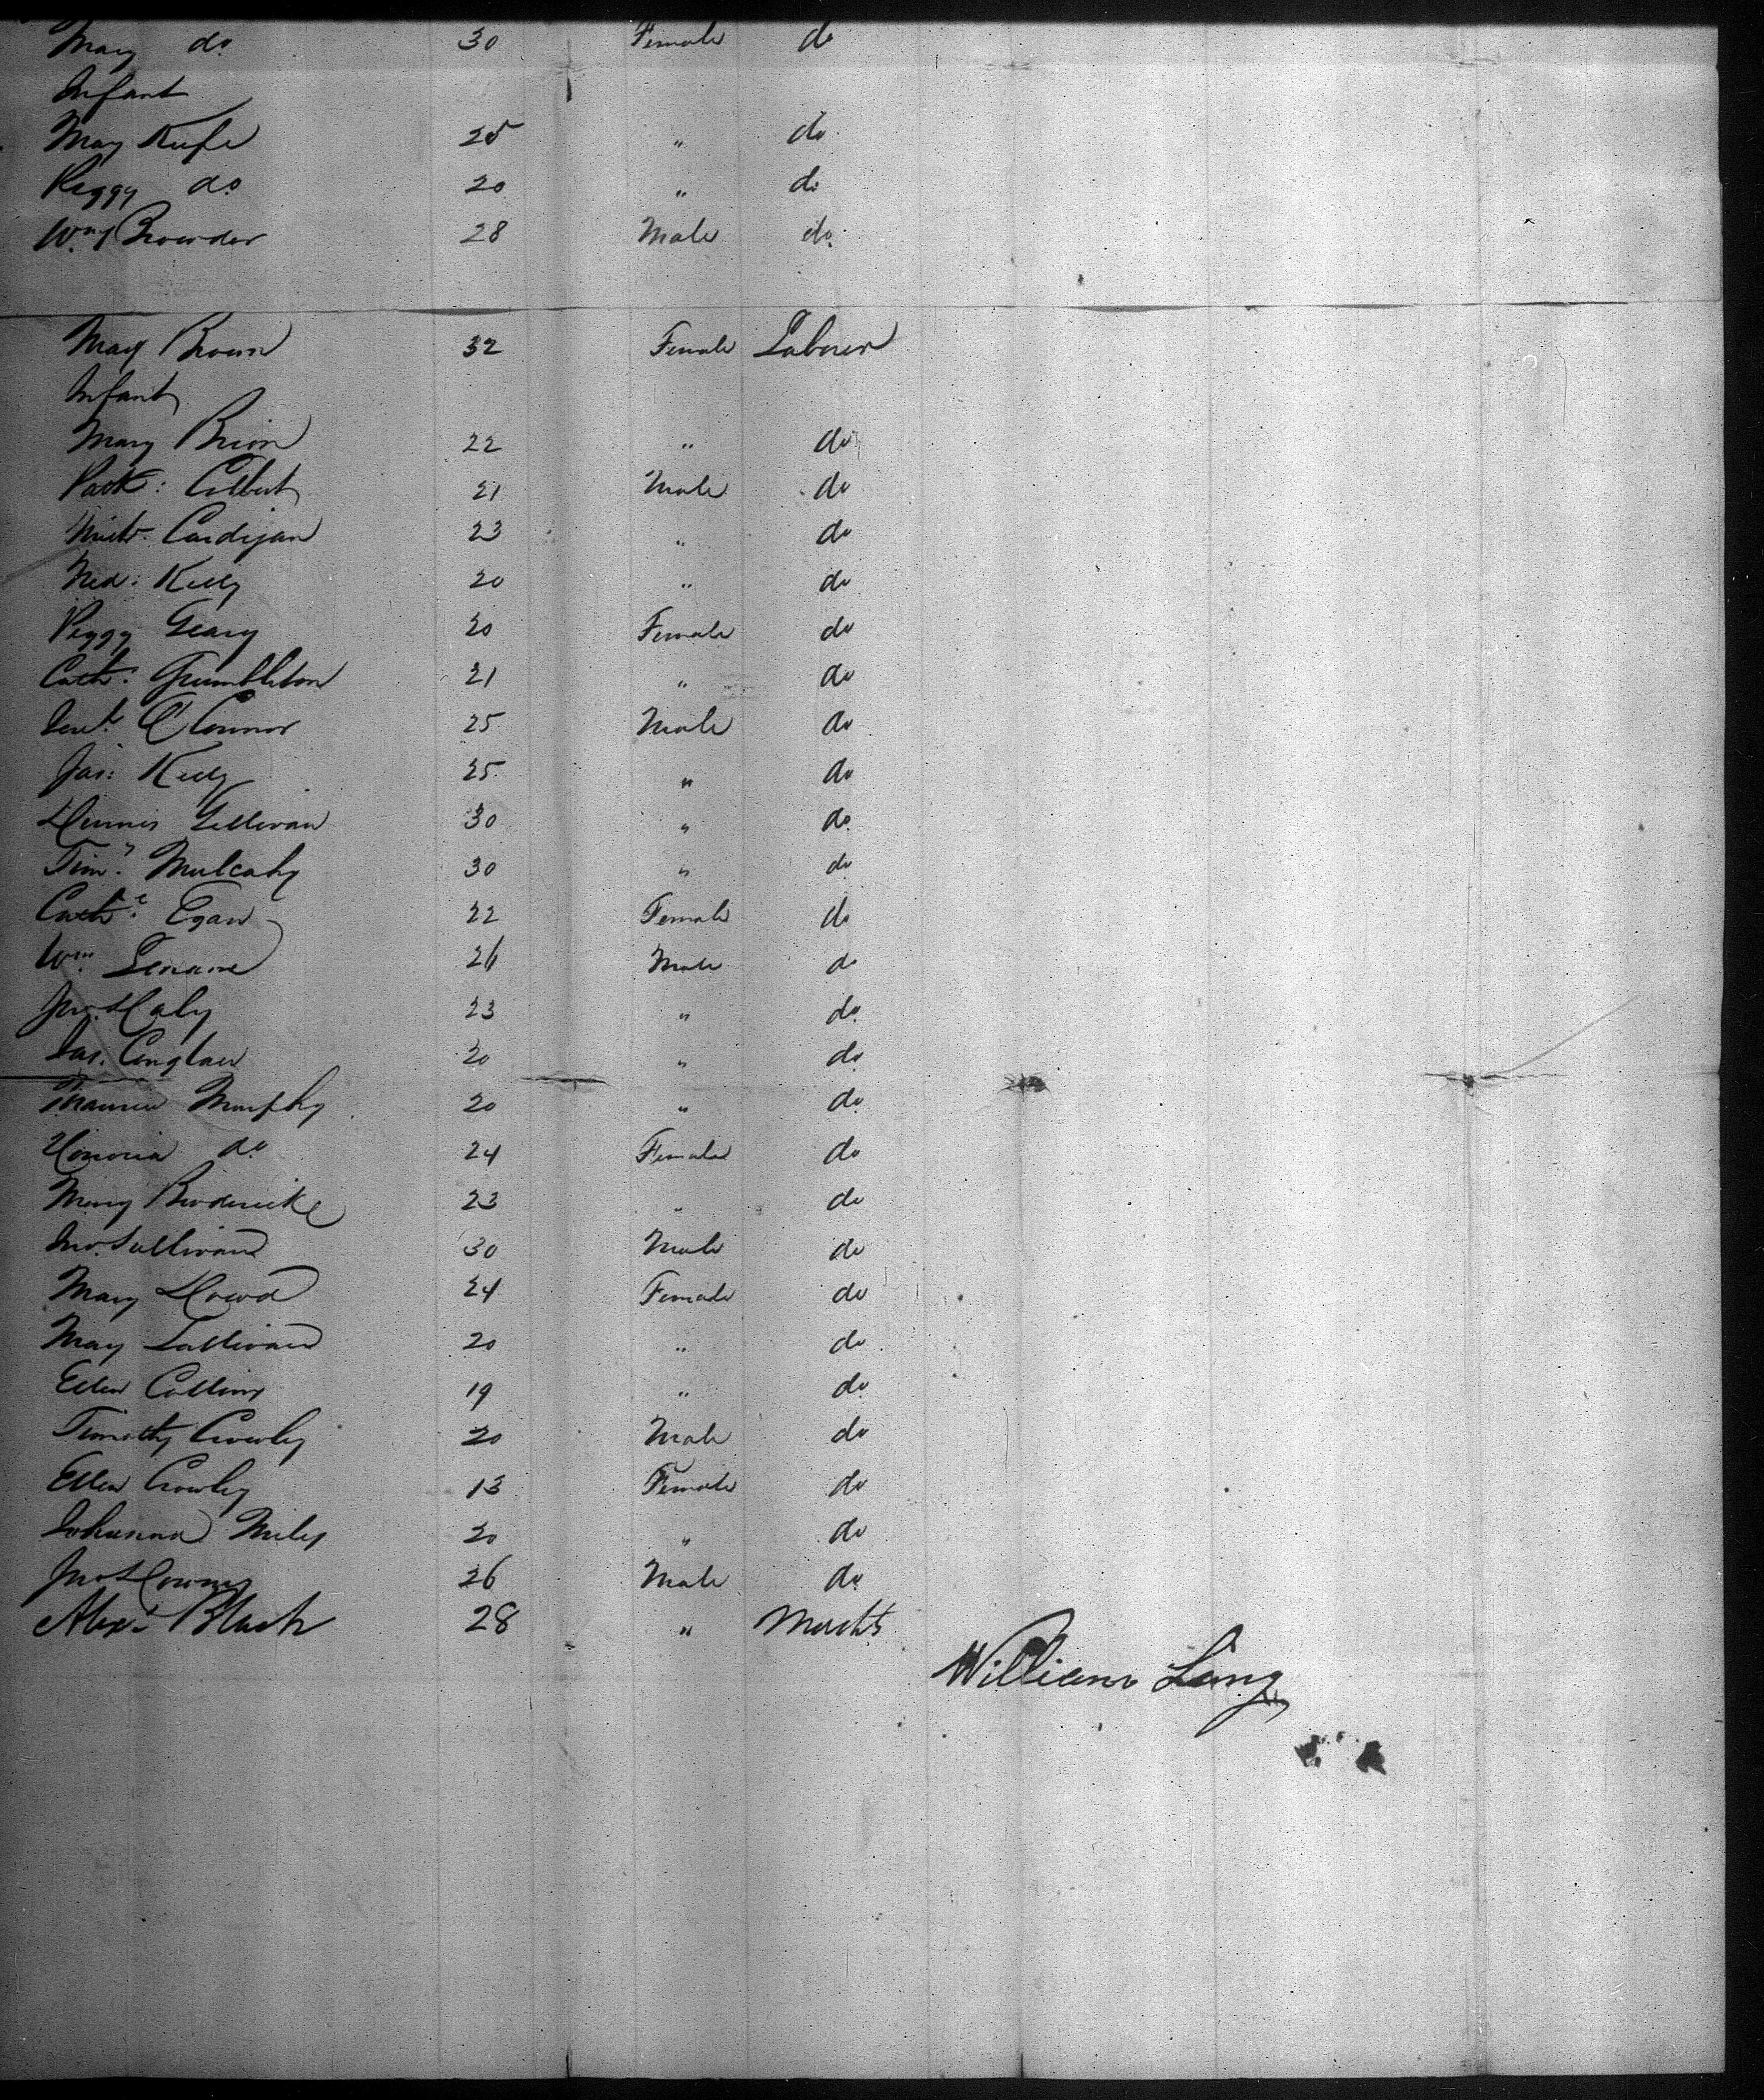 Mary do 30 Female do
Infant
Mary Keefe 25 " do
Peggy do 20 " do
Wm Browder 28 Male do
Mary Brown 32 Female Laborer
Infant
Mary Brion 22 " do
Patk: Colbert 21 Male do
Michl. Cardigan 23 " do
Ned: Kelly 20 " do
Peggy Geary 20 Female do
Cath: Grumbleton 21 " do
O'Connor 25 Male do
Jas: Kelly 25 " do
Dennis Sullivan 30 " do
Timy. Mulcahy 30 " do
Cathe. Egan 22 Female do
Wm Lenane 26 Male do
Jno. Daly 23 " do
Jas. Conglan 20 " do
Maurice Murphy 20 " do
Honoria do 24 Female do
Mary Brodericke 23 " do
Jno. Sullivan 30 Male do
Mary Dowd 24 Female do
Mary Sullivan 20 " do
Ellen Collins 19 " do
Timothy Crowley 20 Male do
Ellen Crowley 13 Female do
Johanna Miles 20 " do
Jno Downey 26 Male do
Alexr Black 28 " Merchts
William Lang